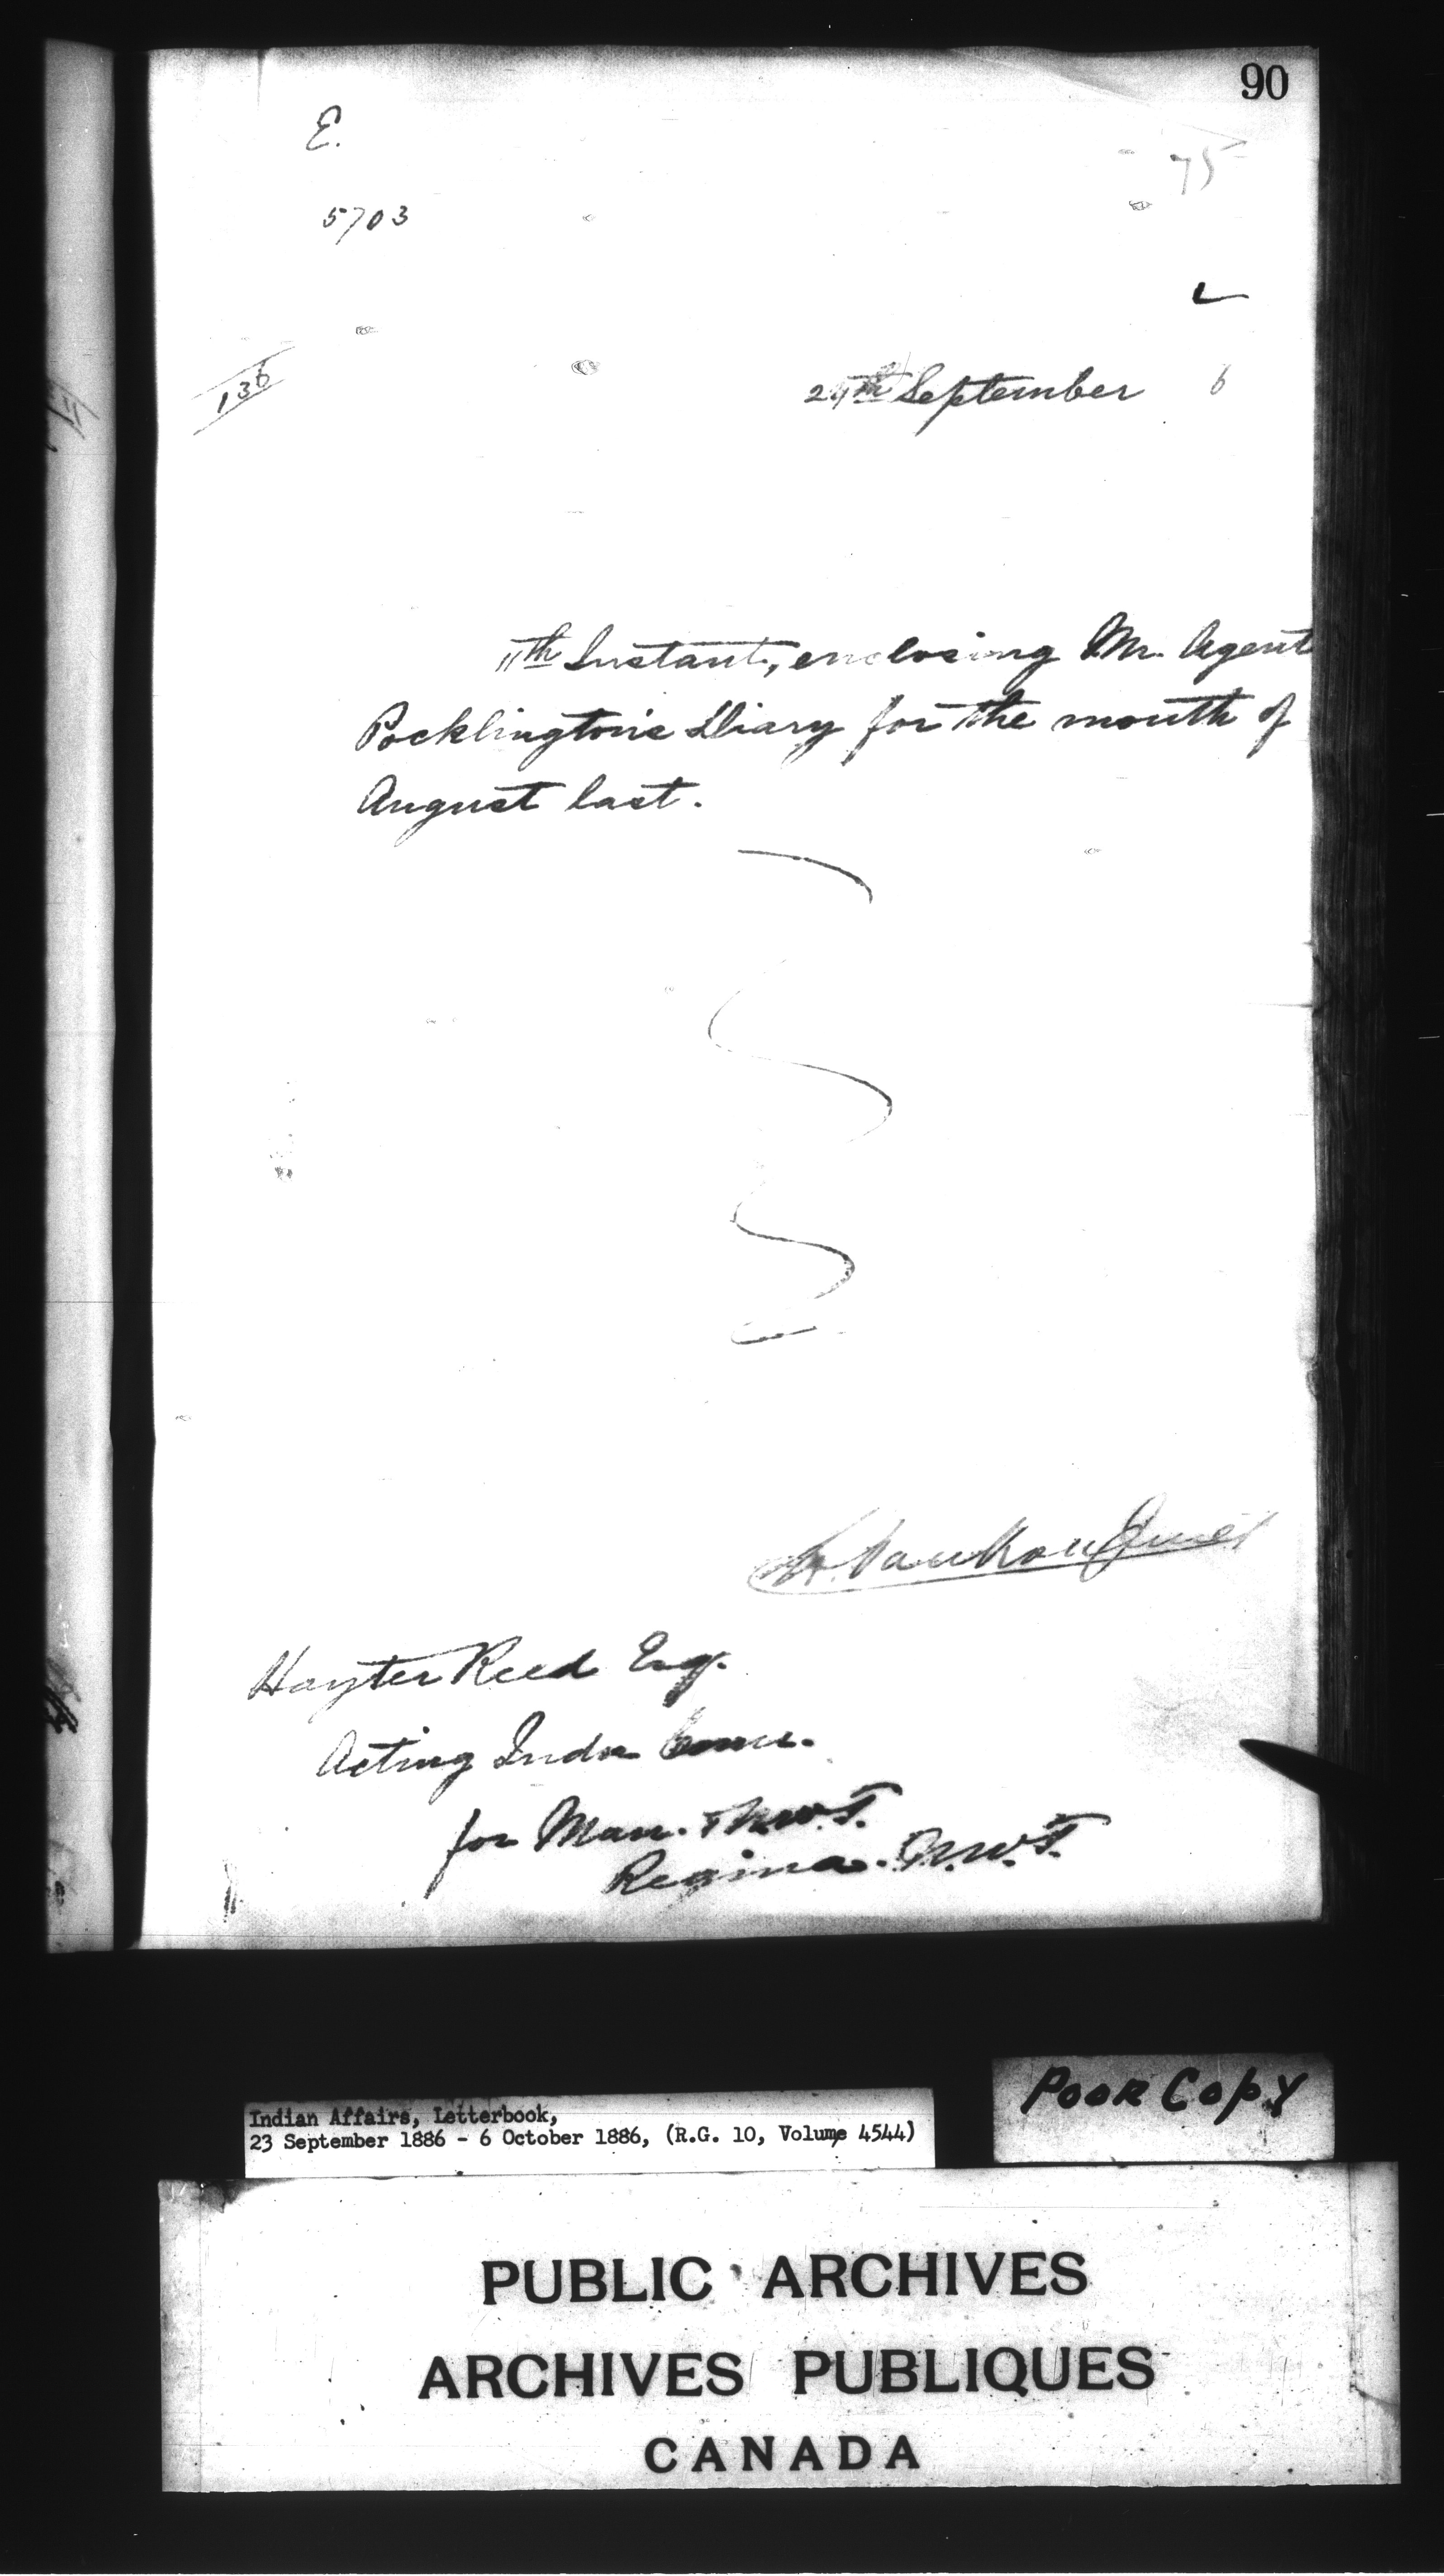 90
E.
75
5703
136
24th September 6
11th Instant, enclosing Mr. Agent
Pocklington's Diary for the month of
August last.
L. Vankoughnet
Hayter Reed Esq.
Acting Indn Comr.
for Man. & N.W.T.
Regina. N.W.T.
Poor Copy
Indian Affairs, Letterbook,
23 September 1886 - 6 October 1886, (R.G. 10, Volume 4544)
PUBLIC ARCHIVES
ARCHIVES PUBLIQUES
CANADA